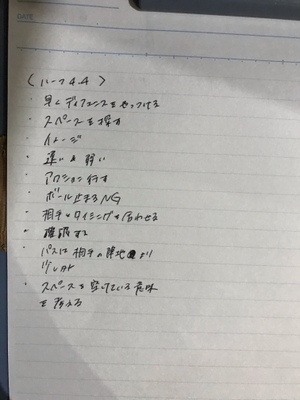 DATE
(ハーフ4.4)
・早くディフェンスをやっつける
・スペースを探す
・イメージ
・速い 弱い
・アクション 行す
・ボール止まるNG
・相手とタイミングを合わせる
・確認する
・パスは相手の陣地より
・スペースを空けている意味
を考える